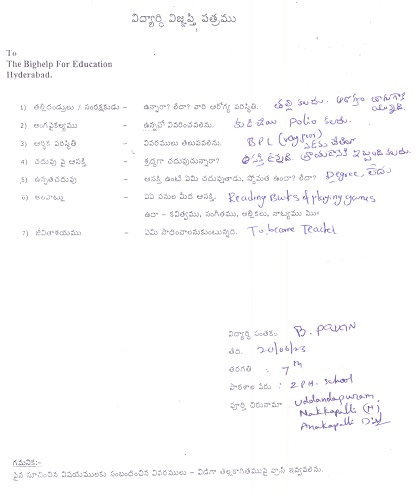 విద్యార్థి విజ్ఞప్తి పత్రము
To
The Bighelp For Education
Hyderabad.
1) తల్లిదండ్రులు / సంరక్షకుడు – ఉన్నారా? లేదా? వారి ఆరోగ్య పరిస్థితి. తల్లి కలదు.
2) అంగవైకల్యము – ఉన్నచో వివరించవలెను. కుడిచేయి Polio కలదు.
3) ఆర్థిక పరిస్థితి – వివరములు తెలుపవలెను. BPL
4) చదువు పై ఆసక్తి – శ్రద్ధగా చదువుచున్నారా?
5) ఉన్నతచదువు – ఆసక్తి ఉంటే ఏమి చదువుతాడు, స్తోమత ఉందా? లేదా? Degree, లేదు
6) అలవాట్లు – ఏఏ పనుల మీద ఆసక్తి. Reading Books & playing games
ఉదా – కవిత్వము, సంగీతము, అల్లికలు, నాట్యము ము॥
7) జీవితాశయము – ఏమి సాధించాలనుకుంటున్నది. To become Teacher
విద్యార్థి సంతకం: B. PAVAN
తేది. 20/06/23
తరగతి : 7th
పాఠశాల పేరు : ZPH. School
పూర్తి చిరునామా Uddandapuram,
Nakkapalli (M)
Anakapalli Dist
గమనిక:-
పైన సూచించిన విషయములకు సంబంధించిన వివరములు – విడిగా తెల్లకాగితముపై వ్రాసి ఇవ్వవలెను.